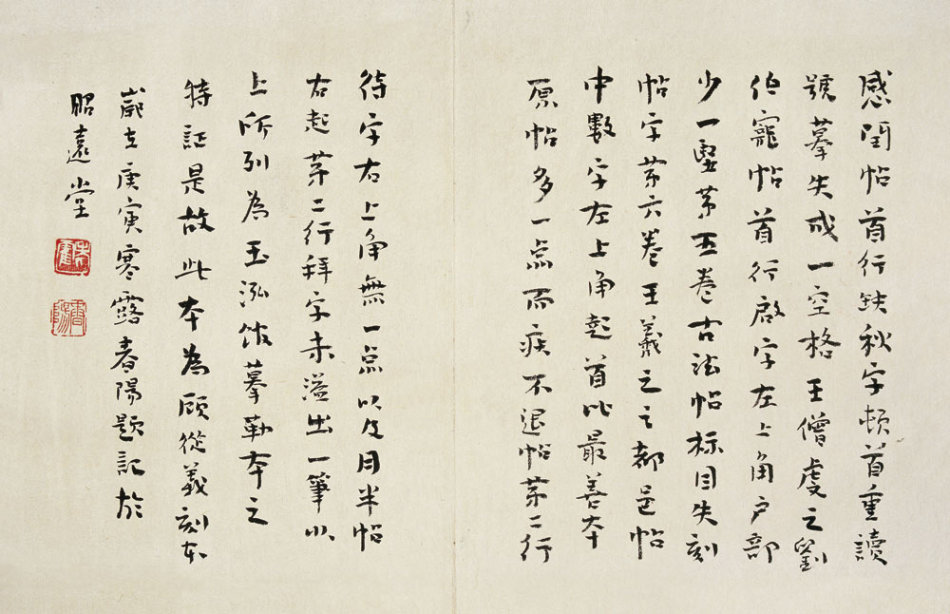 感閏帖首行缺秋字頓首重讀
號摹失成一空格王僧虔之劉
伯寵帖首行啟字左上角戶部
少一竪苐五卷古法帖标目失刻
帖字苐六卷王羲之之都邑帖
中數字左上角起首比最善本
原帖多一点而疾不退帖苐二行
待字右上角無一点以及月半帖
右起苐二行拜字未溢出一筆以
上所列為玉泓馆摹勒本之
特証是故此本為顾從義刻本
歲在庚寅寒露春陽題記於
昭遠堂